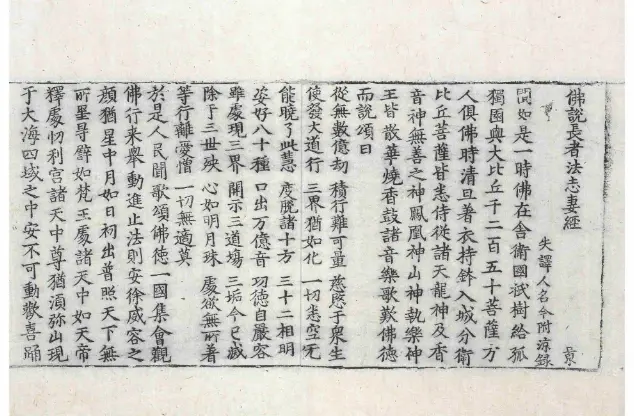 佛說長者法志妻經 景
失譯人名今附涼錄
聞如是一時佛在舍衛國祇樹給孤
獨園與大比丘千二百五十菩薩万
人俱佛時清旦著衣持鉢入城分衛
比丘菩薩皆悉侍從諸天龍神及香
音神無善之神鳳凰神山神執樂神
王皆散華燒香鼓諸音樂歌歎佛德
而說頌曰
從無數億劫 積行難可量 慈愍于衆生
使發大道行 三界猶如化 一切悉空无
能曉了此慧 度脫諸十方 三十二相明
姿好八十種 口出万億音 功德自嚴容
雖處現三界 開示三道場 三垢今已滅
除于三世殃 心如明月珠 處欲無所著
等行離憂憎 一切無適莫
於是人民聞歌頌佛德一國集會觀
佛行来舉動進止法則安徐威容之
顔猶星中月如日初出普照天下無
所罣㝵譬如梵王處諸天中如天帝
釋處忉利宮諸天中尊猶須弥山現
于大海四域之中安不可動歡喜踊